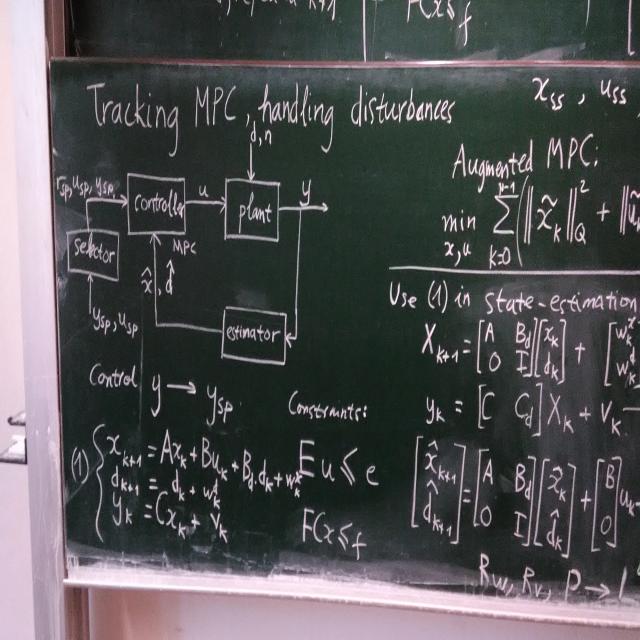 F(x ≤ f
Tracking MPC, handling disturbances
d, n
r_sp, u_sp, y_sp
controller
u
plant
y
selector
MPC
x̂, d̂
y_sp, u_sp
estimator
Control y → y_sp
Constraints:
(1) { x_{k+1} = Ax_k + Bu_k + B_d·d_k + w_k^x
d_{k+1} = d_k + w_k^d
y_k = Cx_k + v_k
Eu ≤ e
F(x ≤ f
x_ss, u_ss,
Augmented MPC:
min x,u ∑_{k=0}^{N-1} ( ‖x̃_k‖²_Q + ‖ũ_k
Use (1) in state-estimation
X_{k+1} = [A B_d; 0 I] [x_k; d_k] + [w_k^x; w_k^d
y_k = [C C_d] X_k + v_k
[x̂_{k+1}; d̂_{k+1}] = [A B_d; 0 I] [x̂_k; d̂_k] + [B; 0] u_k
R_w, R_v, P →